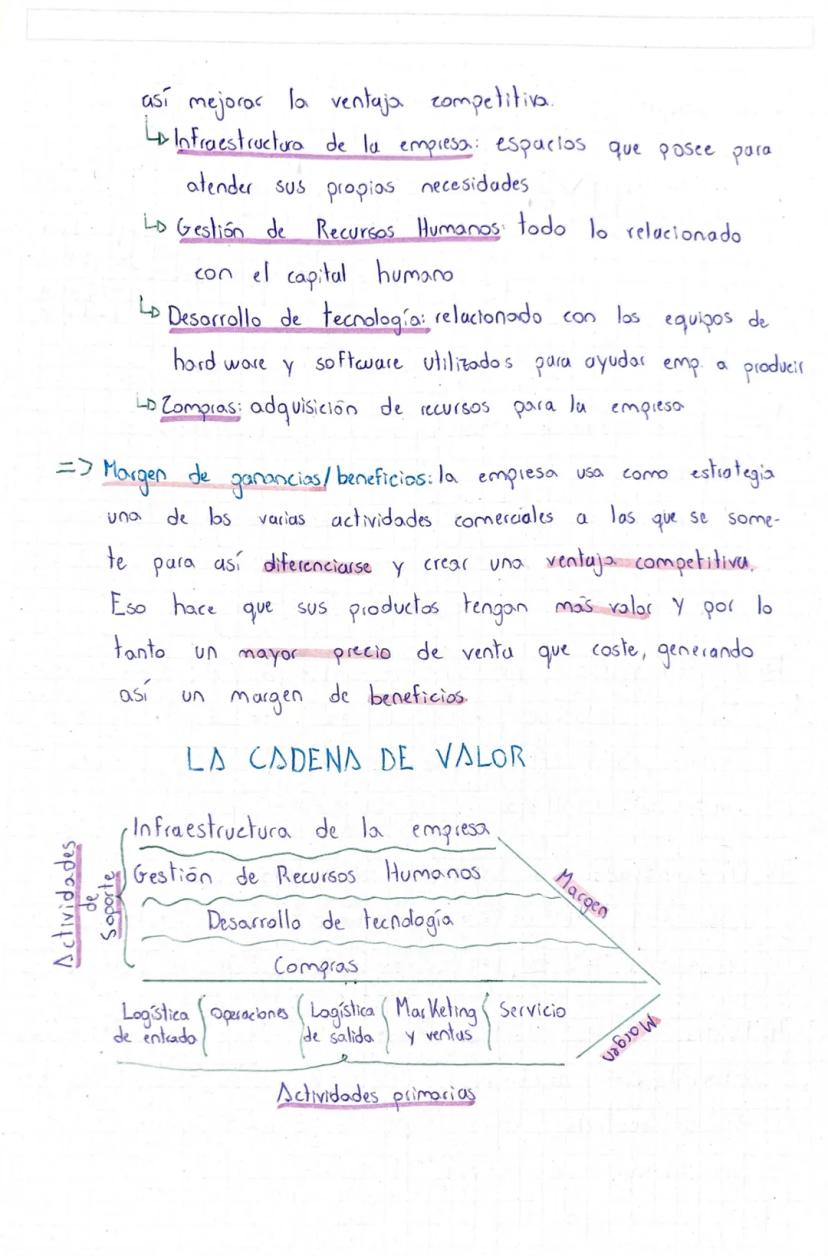 así mejorar la ventaja competitiva.
↳ Infraestructura de la empresa: espacios que posee para
atender sus propios necesidades
↳ Gestión de Recursos Humanos: todo lo relacionado
con el capital humano
↳ Desarrollo de tecnología: relacionado con los equipos de
hardware y software utilizados para ayudar emp. a producir
↳ Compras: adquisición de recursos para la empresa
=> Margen de ganancias/beneficios: la empresa usa como estrategia
una de las varias actividades comerciales a las que se some-
te para así diferenciarse y crear una ventaja competitiva.
Eso hace que sus productos tengan más valor y por lo
tanto un mayor precio de venta que coste, generando
así un margen de beneficios.
LA CADENA DE VALOR
Actividades
de
Soporte
Infraestructura de la empresa
Gestión de Recursos Humanos
Desarrollo de tecnología
Compras
Margen
Logística de entrada
Operaciones
Logística de salida
Marketing y ventas
Servicio
Margen
Actividades primarias